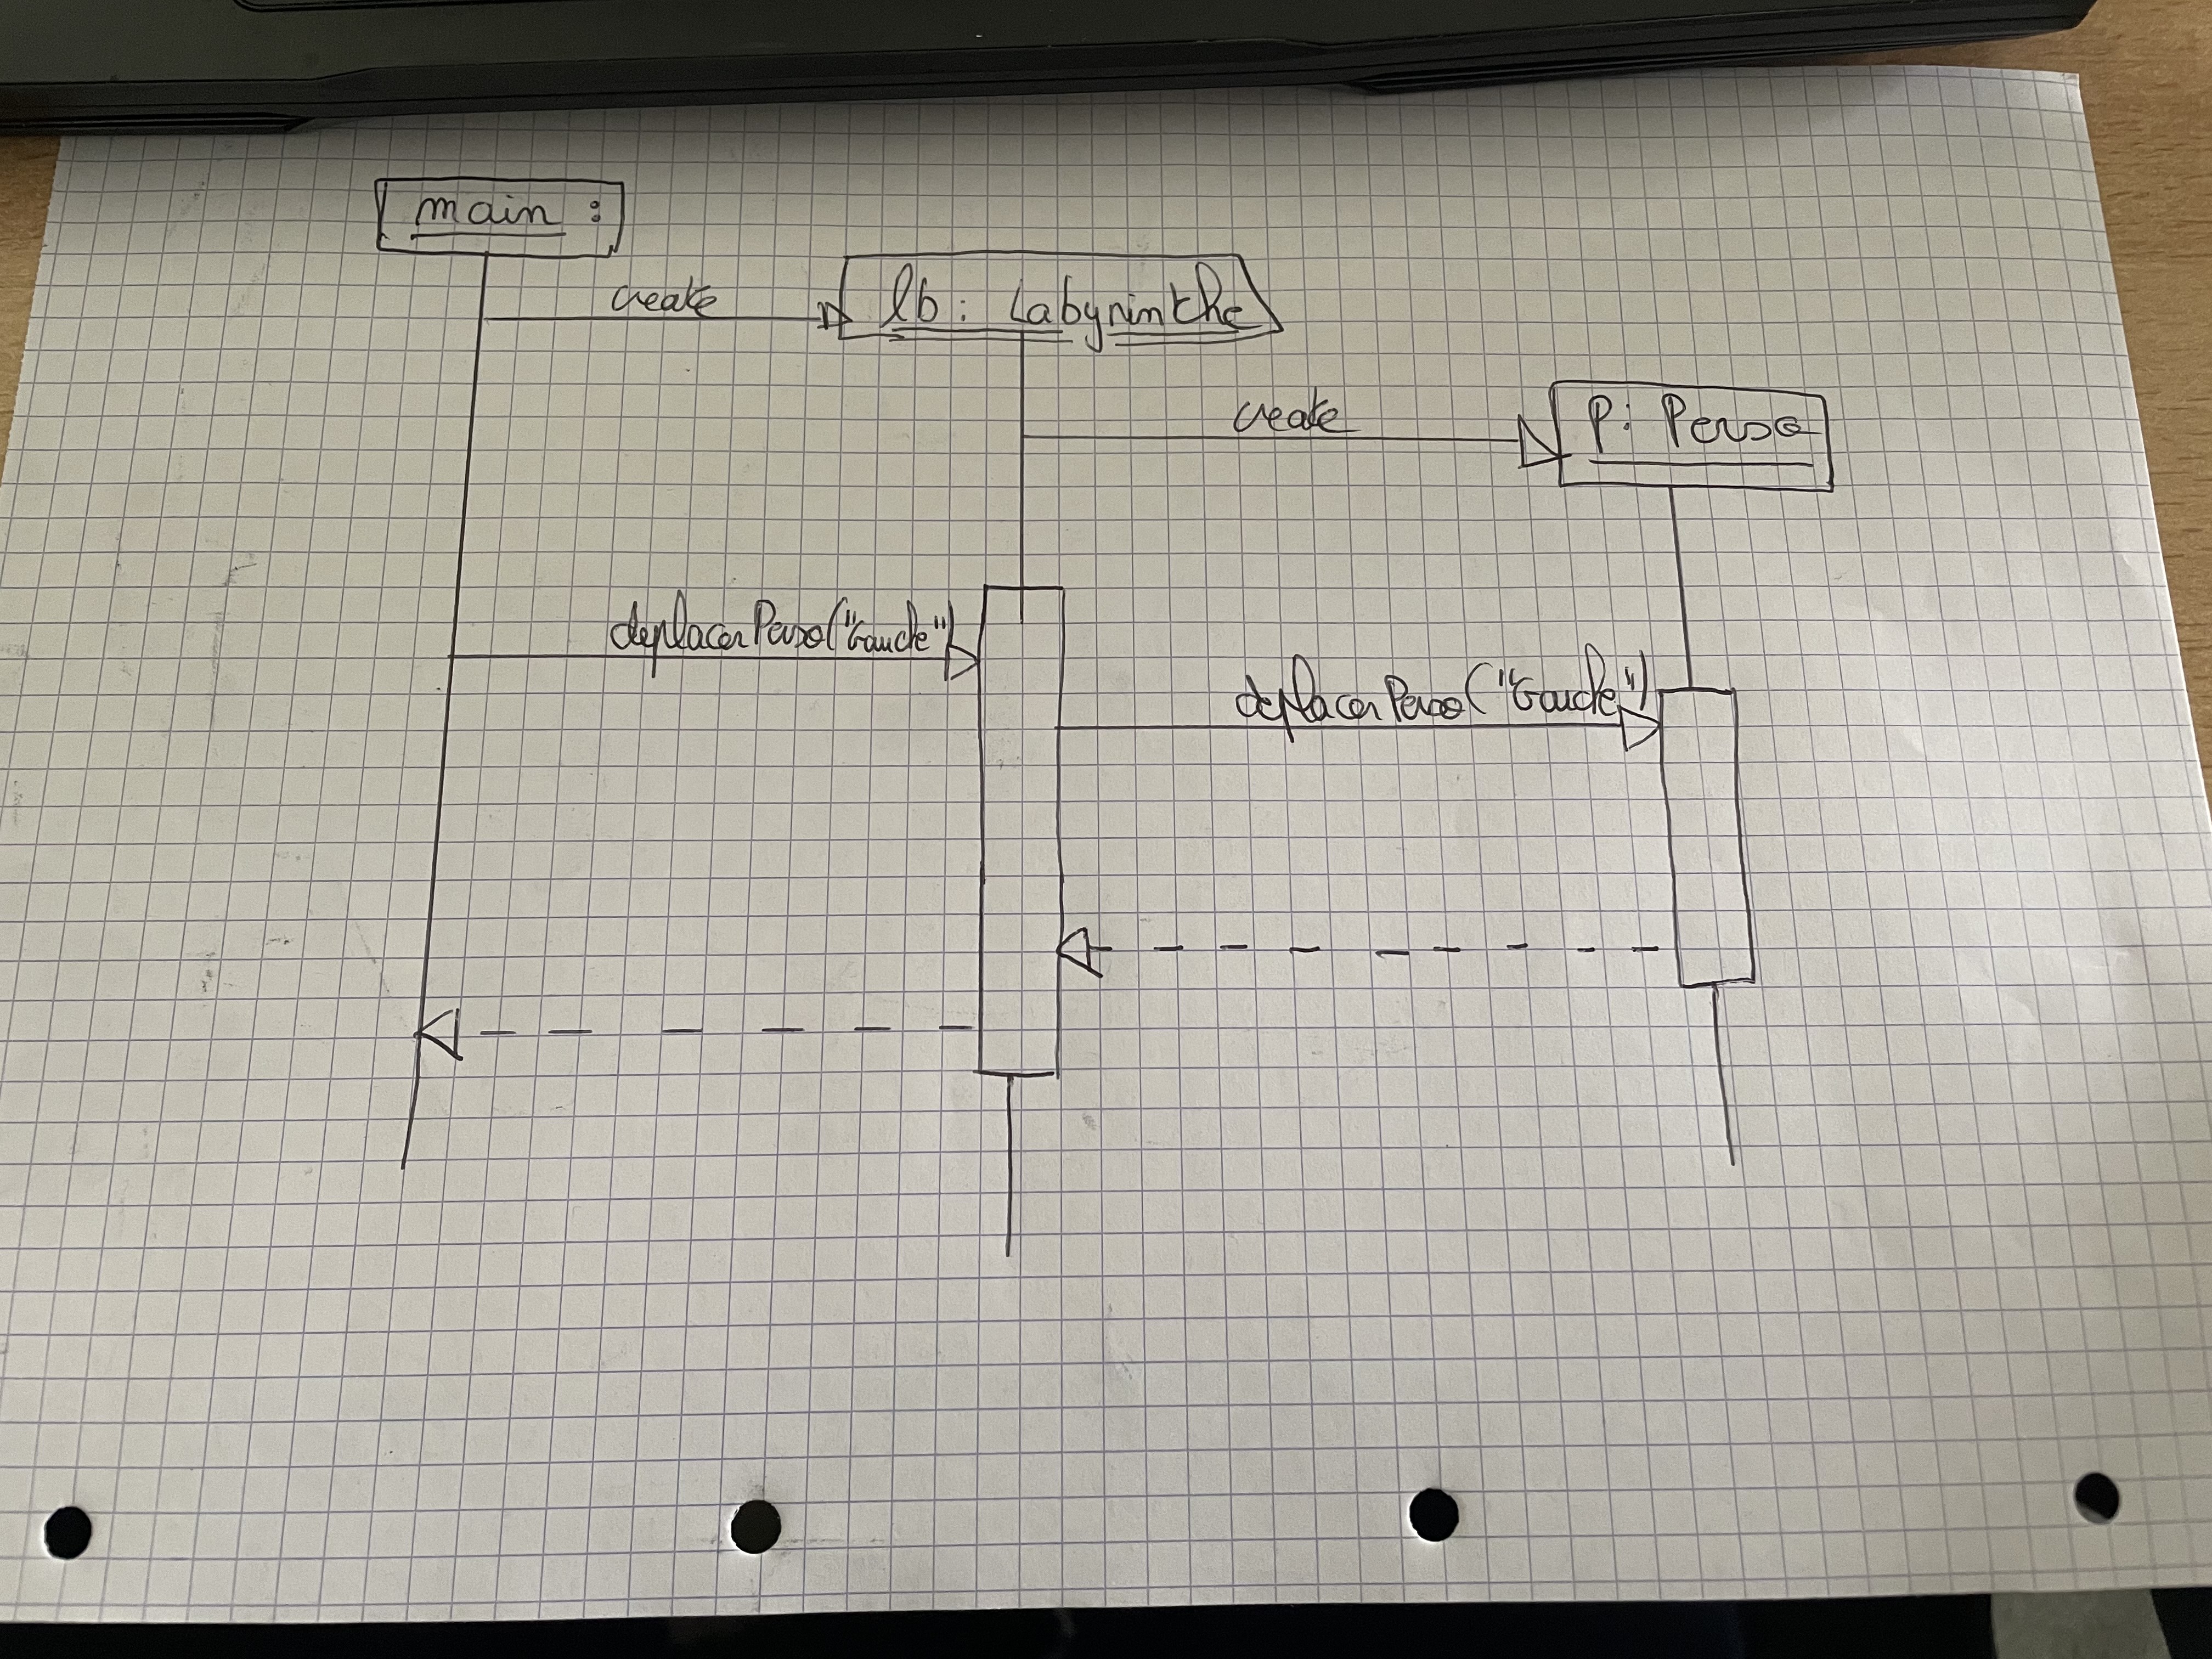 main :
create
lb : Labyrinthe
create
P : Perso
deplacerPerso("Gauche")
deplacerPerso("Gauche")